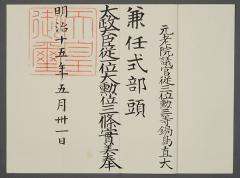 元老院議官従三位勲三等鍋島直大
兼任式部頭
太政大臣従一位大勲位三條實美奉
明治十五年五月卅一日
天皇
御璽